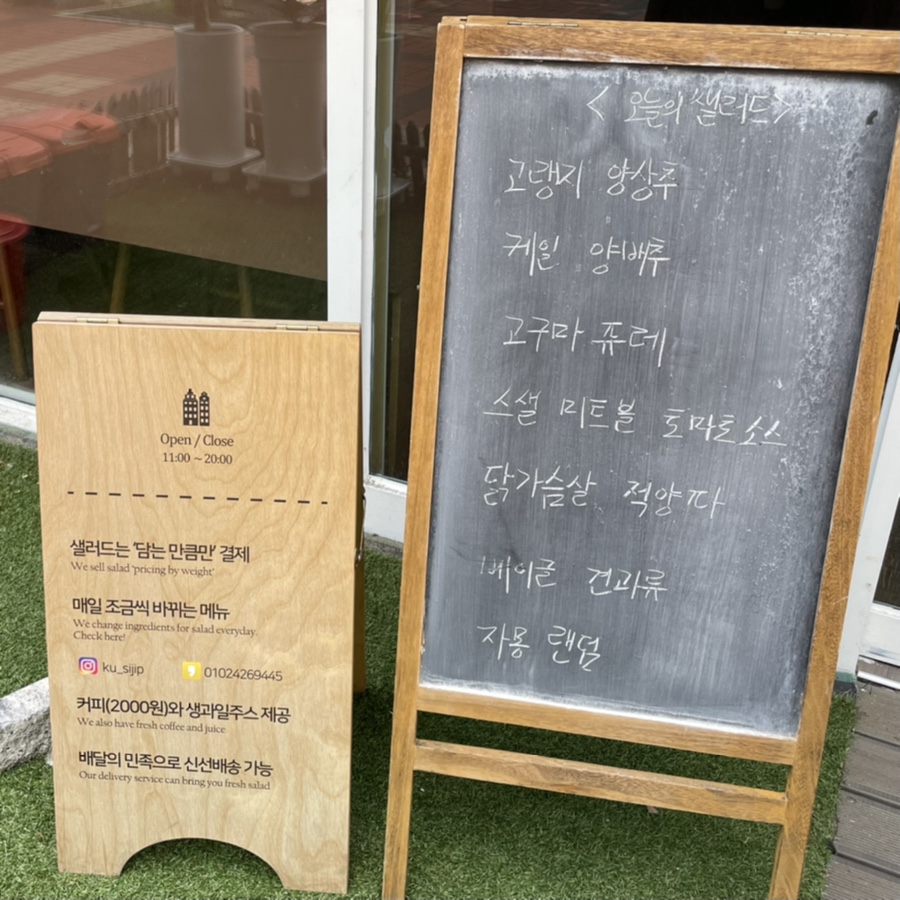 Open / Close
11:00 ~ 20:00
샐러드는 '담는 만큼만' 결제
We sell salad 'pricing by weight'
매일 조금씩 바뀌는 메뉴
We change ingredients for salad everyday.
Check here!
ku_sijip
01024269445
커피(2000원)와 생과일주스 제공
We also have fresh coffee and juice
배달의 민족으로 신선배송 가능
Our delivery service can bring you fresh salad
< 오늘의 샐러드>
고랭지 양상추
케일 양배추
고구마 퓨레
스샐 미트볼 토마토소스
닭가슴살 적양파
베이글 견과류
자몽 랜덤